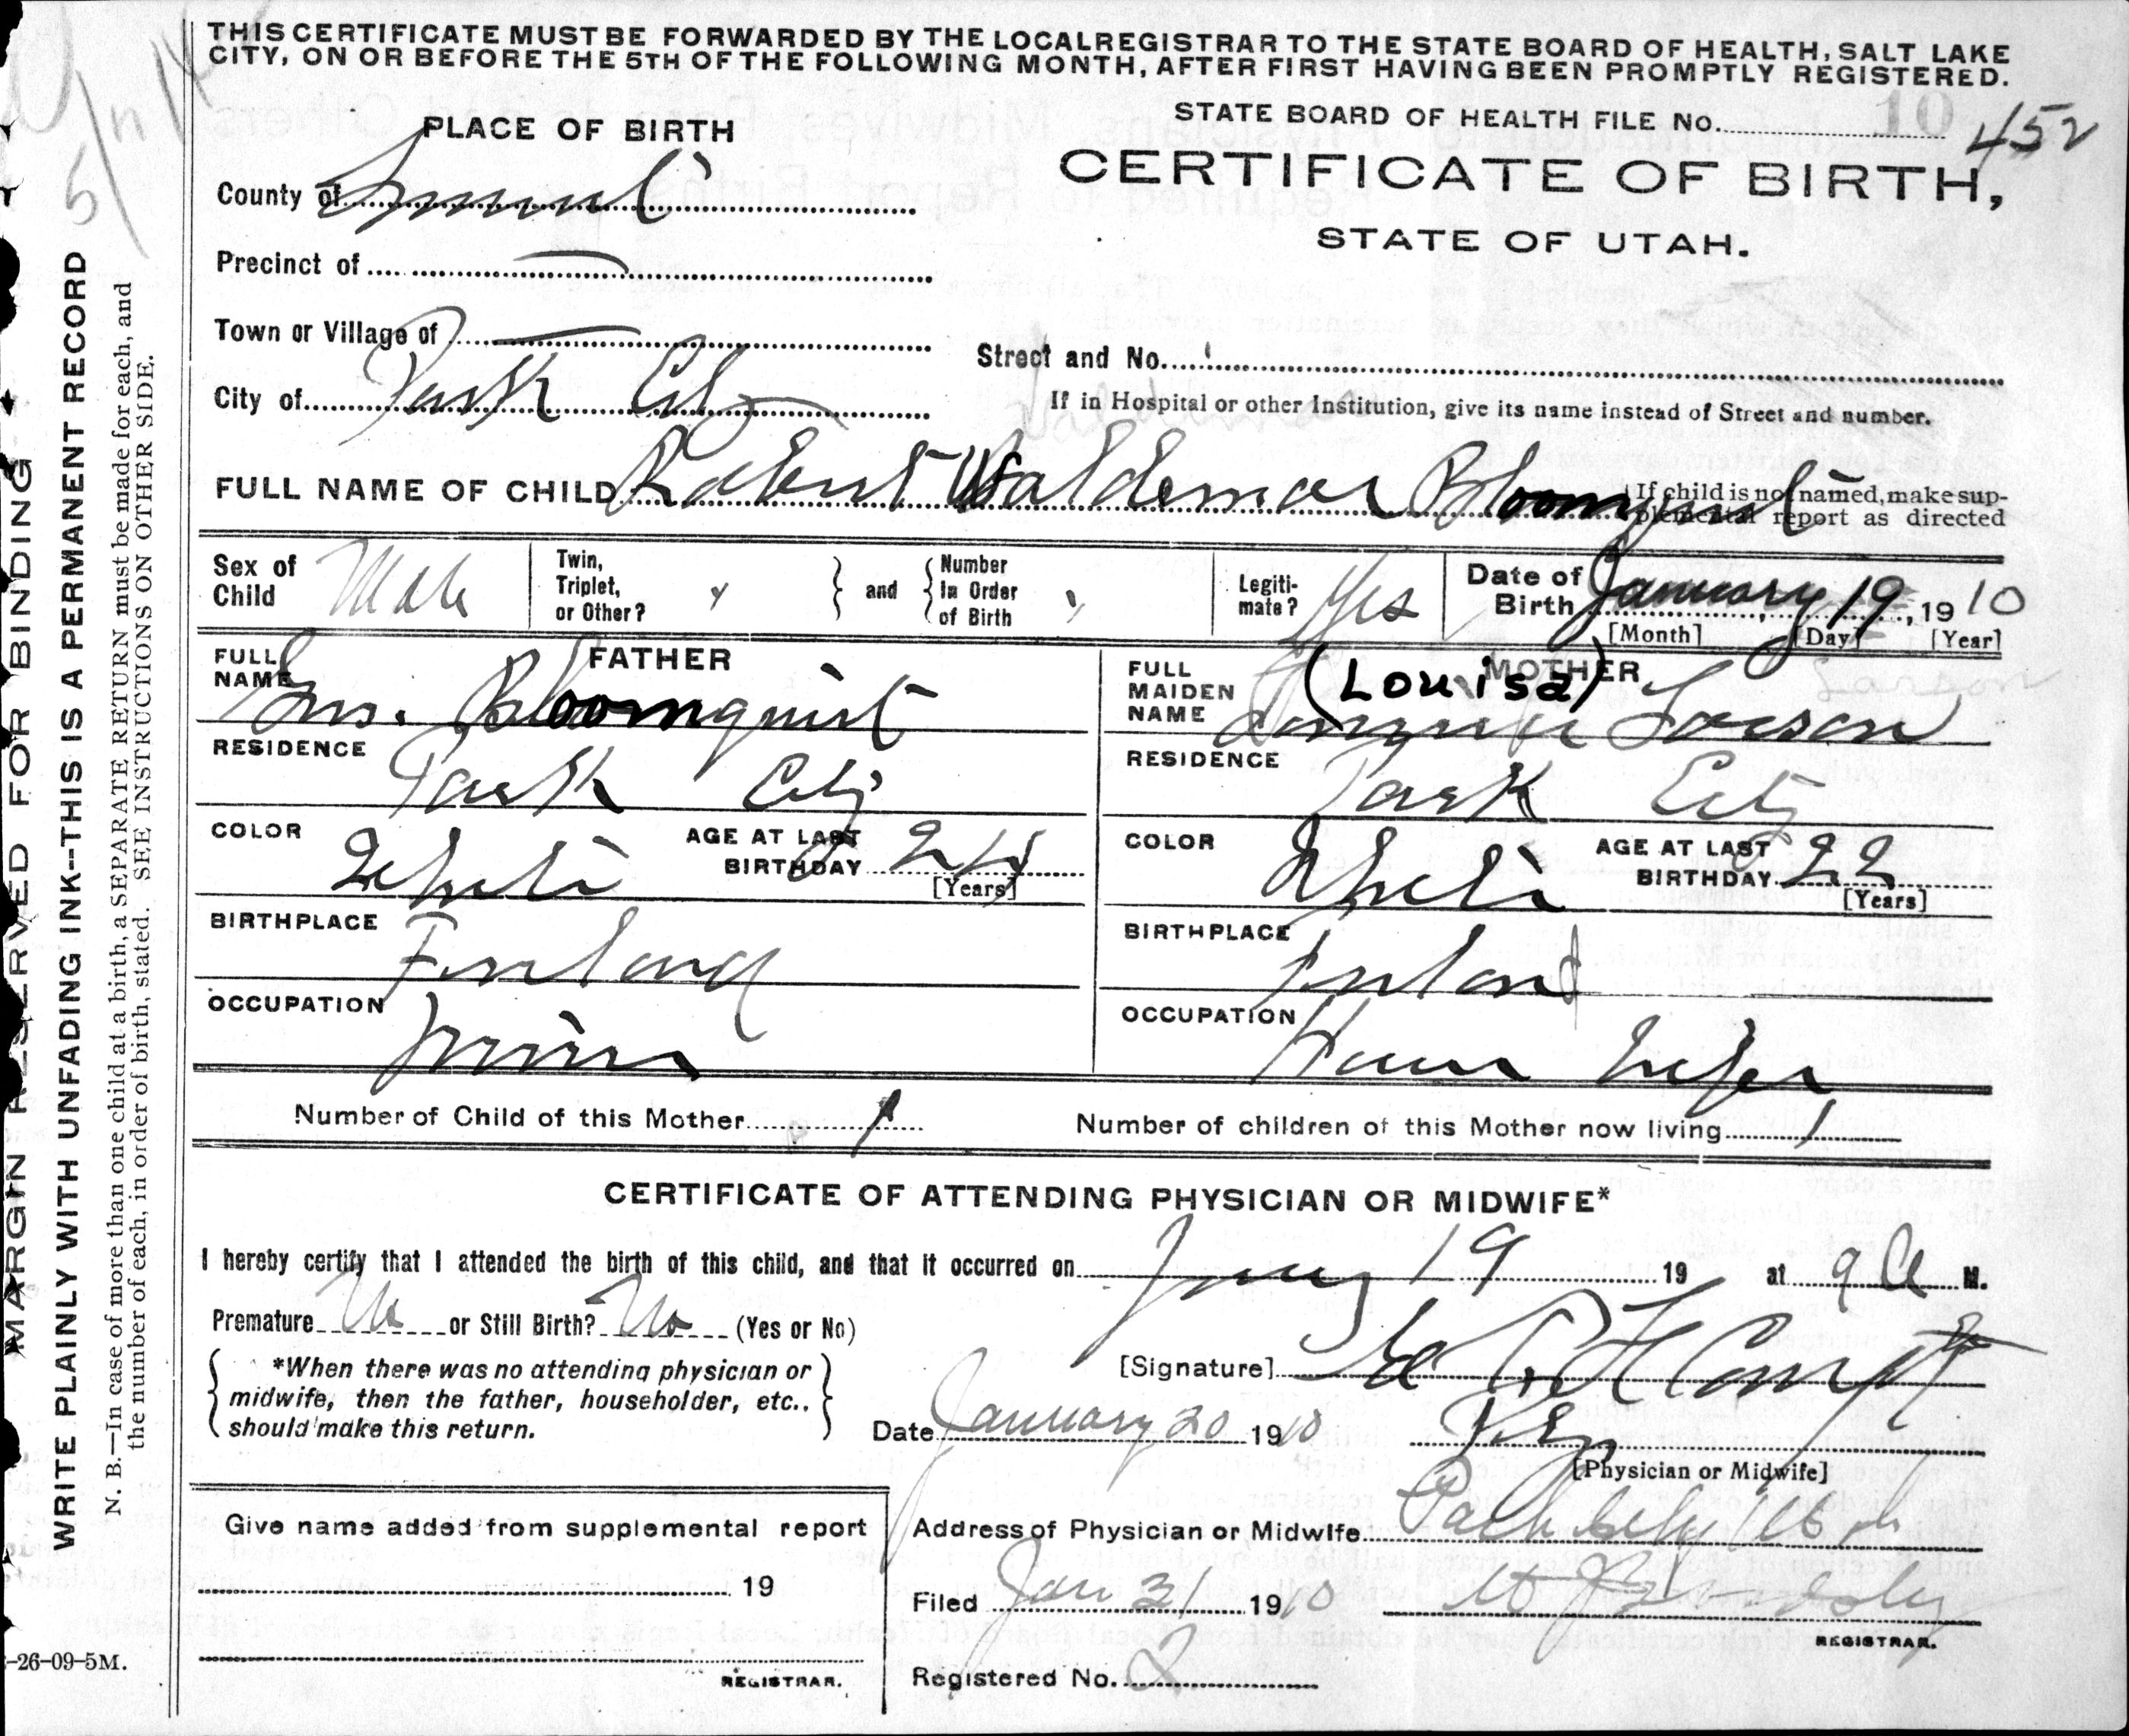 THIS CERTIFICATE MUST BE FORWARDED BY THE LOCAL REGISTRAR TO THE STATE BOARD OF HEALTH, SALT LAKE
CITY, ON OR BEFORE THE 5TH OF THE FOLLOWING MONTH, AFTER FIRST HAVING BEEN PROMPTLY REGISTERED.
PLACE OF BIRTH
STATE BOARD OF HEALTH FILE No. 10 452
CERTIFICATE OF BIRTH,
STATE OF UTAH.
County of Summit
Precinct of —
Town or Village of —
Street and No.
City of Park City
If in Hospital or other Institution, give its name instead of Street and number.
FULL NAME OF CHILD Robert Waldemar Bloomquist
If child is not named, make sup-
plemental report as directed
Sex of Child Male
Twin, Triplet, or Other?
and
Number In Order of Birth
Legiti-mate? Yes
Date of Birth January 19, 1910
[Month] [Day] [Year]
FATHER
FULL NAME Bloomquist
RESIDENCE Park City
COLOR White AGE AT LAST BIRTHDAY 24
[Years]
BIRTHPLACE Finland
OCCUPATION Miner
MOTHER
FULL MAIDEN NAME (Louisa) Larson
Larson
RESIDENCE Park City
COLOR White AGE AT LAST BIRTHDAY 22
[Years]
BIRTHPLACE Finland
OCCUPATION House Wife
Number of Child of this Mother 1
Number of children of this Mother now living 1
CERTIFICATE OF ATTENDING PHYSICIAN OR MIDWIFE*
I hereby certify that I attended the birth of this child, and that it occurred on Jany 19 19 at 9 a M.
Premature No or Still Birth? No (Yes or No)
*When there was no attending physician or
midwife, then the father, householder, etc.,
should make this return.
[Signature]
Date January 20 1910
[Physician or Midwife]
Give name added from supplemental report
19
REGISTRAR.
Address of Physician or Midwife Park City Utah
Filed Jan 31 1910
REGISTRAR.
Registered No. 2
-26-09-5M.
MARGIN RESERVED FOR BINDING
WRITE PLAINLY WITH UNFADING INK--THIS IS A PERMANENT RECORD
N. B.—In case of more than one child at a birth, a SEPARATE RETURN must be made for each, and
the number of each, in order of birth, stated. SEE INSTRUCTIONS ON OTHER SIDE.